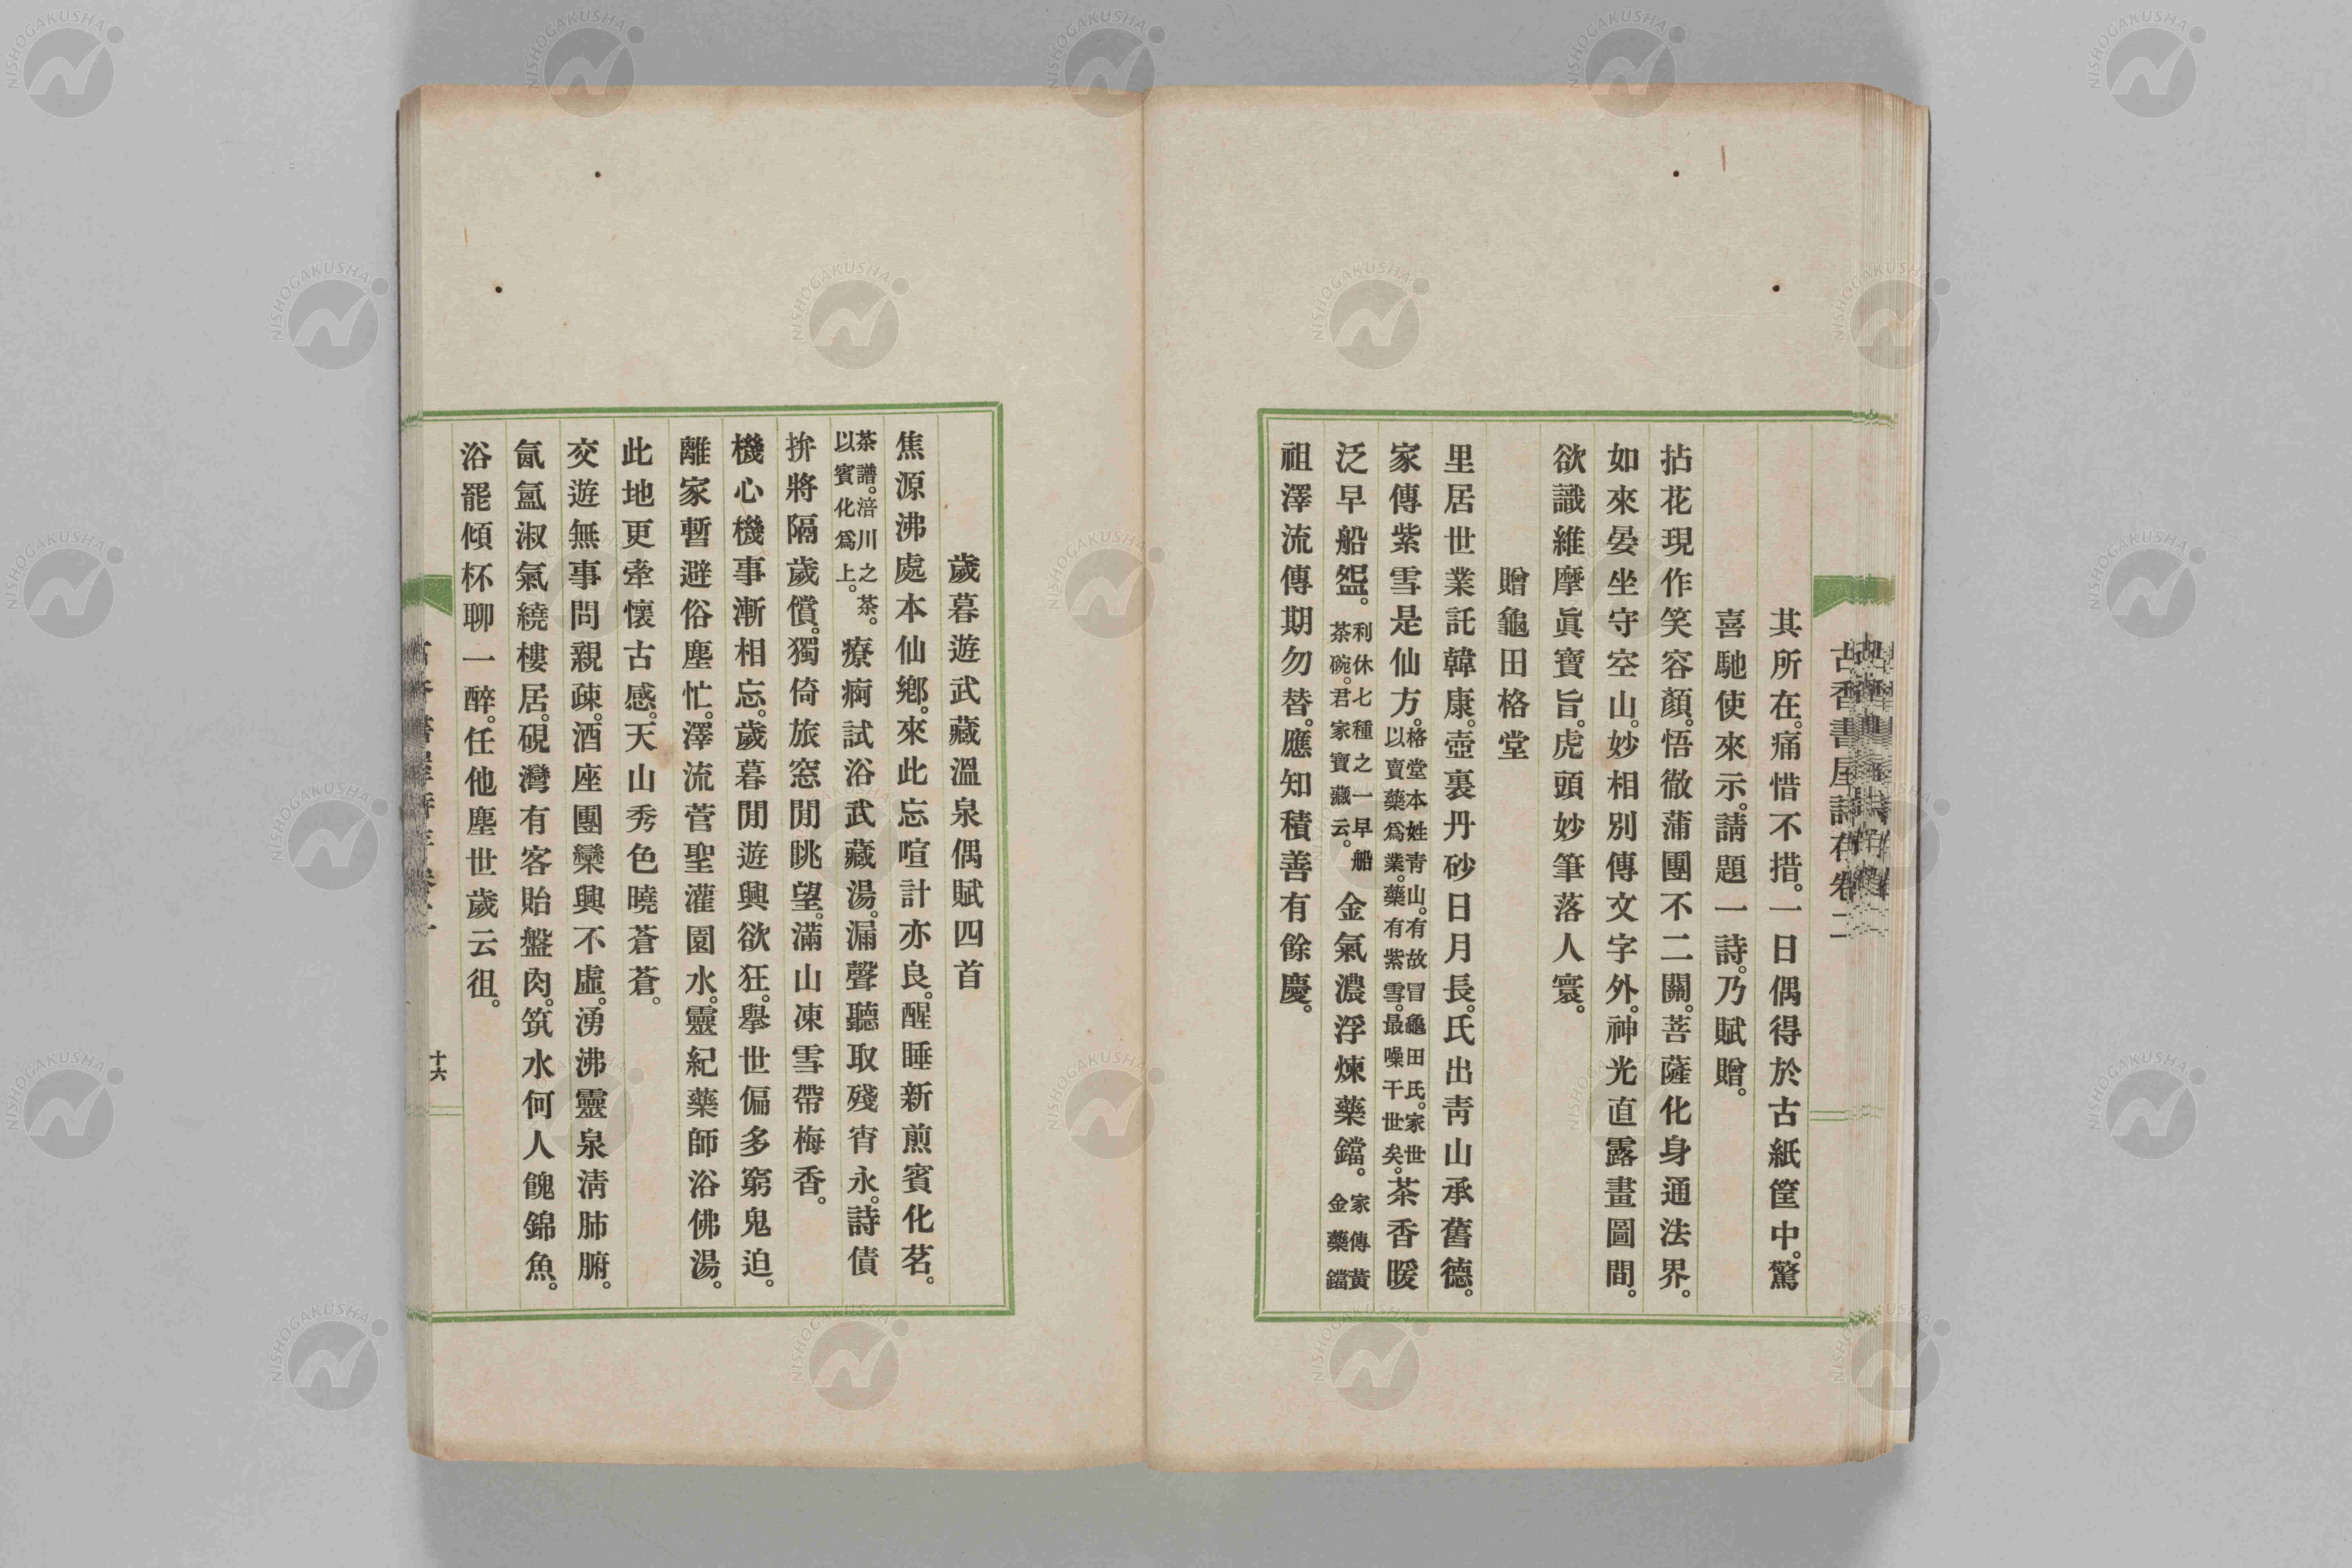 其所在。痛惜不措。一日偶得於古紙筐中。驚
喜馳使來示。請題一詩。乃賦贈。
拈花現作笑容顏。悟徹蒲團不二關。菩薩化身通法界。
如來晏坐守空山。妙相別傳文字外。神光直露畫圖間。
欲識維摩眞寶旨。虎頭妙筆落人寰。
贈龜田格堂
里居世業託韓康。壺裏丹砂日月長。氏出靑山承舊德。
家傳紫雪是仙方。格堂本姓靑山。有故冒龜田氏。家世以賣藥爲業。藥有紫雪。最噪干世矣。茶香暖
泛早船盌。利休七種之一早船茶碗。君家寶藏云。金氣濃浮煉藥鐺。家傳黃金藥鐺
祖澤流傳期勿替。應知積善有餘慶。
歲暮遊武藏溫泉偶賦四首
焦源沸處本仙鄕。來此忘喧計亦良。醒睡新煎賓化茗。
茶譜。涪川之茶。以賓化爲上。療痾試浴武藏湯。漏聲聽取殘宵永。詩債
拚將隔歲償。獨倚旅窓閒眺望。滿山凍雪帶梅香。
機心機事漸相忘。歲暮閒遊興欲狂。擧世偏多窮鬼迫。
離家暫避俗塵忙。澤流菅聖灌園水。靈紀藥師浴佛湯。
此地更牽懷古感。天山秀色曉蒼蒼。
交遊無事問親疎。酒座團欒興不虛。湧沸靈泉淸肺腑。
氤氳淑氣繞樓居。硯灣有客貽盤肉。筑水何人餽錦魚。
浴罷傾杯聊一醉。任他塵世歲云徂。
十六